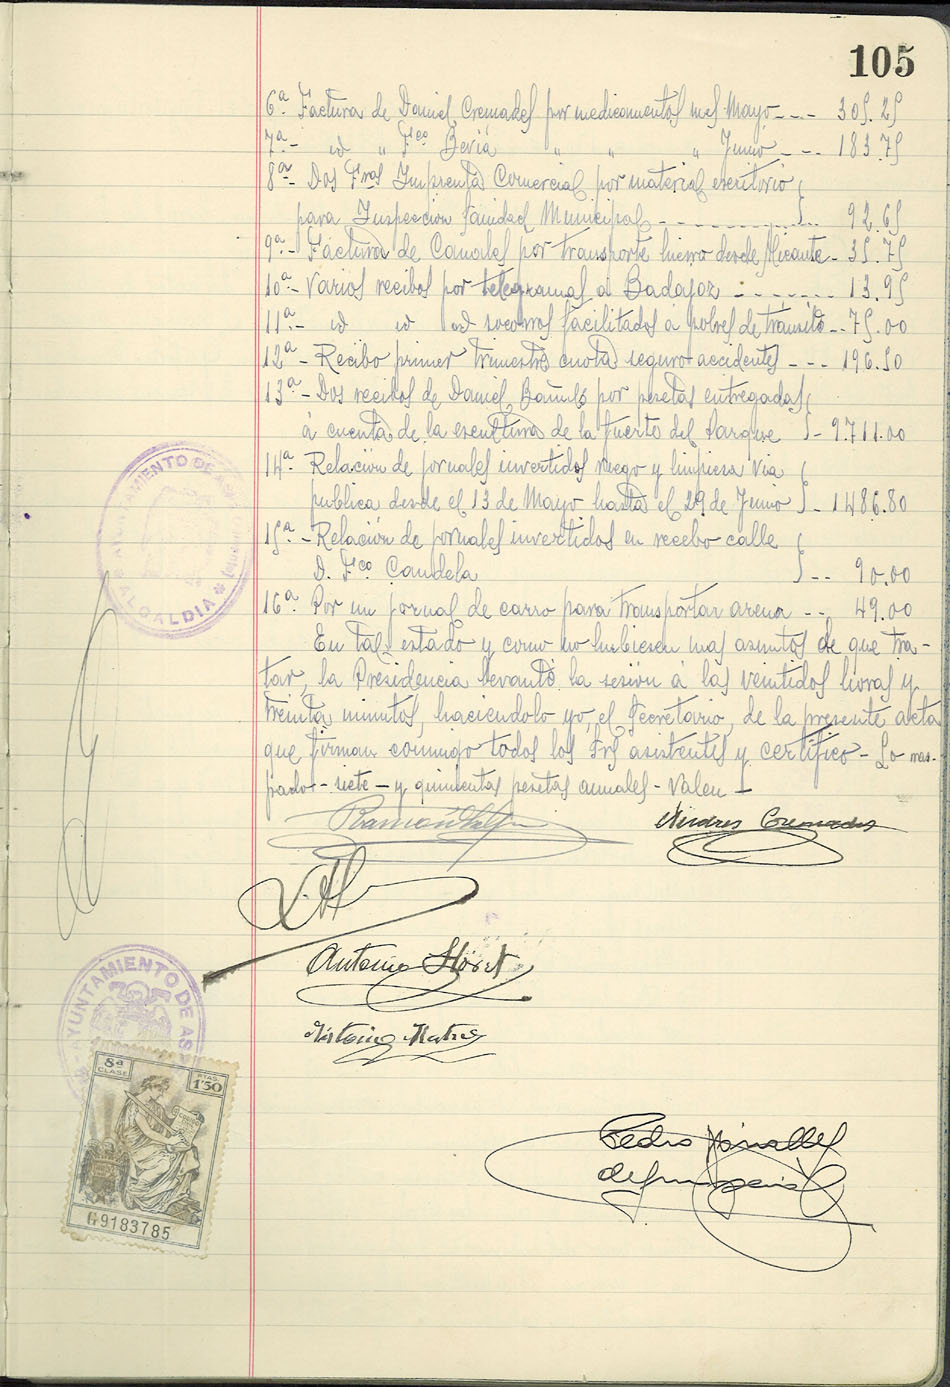 105
6ª Factura de Daniel Cremades por medicamentos mes Mayo --- 305.25
7ª - id " Fco Beviá " " " Junio --- 183.75
8ª - Dos Fras Imprenta Comercial por material escritorio
para Inspección Sanidad Municipal - - - - - - - - 92.65
9ª - Factura de Canales por transporte hierro desde Alicante - 35.75
10ª - Varios recibos por telegramas a Badajoz - - - - - - - 13.95
11ª - id id id socorros facilitados a pobres de tránsito -- 75.00
12ª - Recibo primer trimestre cuota seguro accidentes --- 196.50
13ª - Dos recibos de Daniel Bañuls por pesetas entregadas
á cuenta de la escultura de la puerta del Parque - 9.711.00
14ª Relación de jornales invertidos riego y limpieza via
publica desde el 13 de Mayo hasta el 29 de Junio - 1486.80
15ª - Relación de jornales invertidos en recebo calle
D. Fco Candela -- 90.00
16ª Por un jornal de carro para transportar arena -- 49.00
En tal estado y como no hubiesen mas asuntos de que tra-
tar, la Presidencia levantó la sesión á las veintidos horas y
treinta minutos, haciendolo yo, el Secretario, de la presente acta
que firman conmigo todos los Srs asistentes y certifico - Lo ras-
pado - siete - y quinientas pesetas anuales - Valen -
Ramón
Andres Cremades
Antonio Lloret
Antonio
Pedro
AYUNTAMIENTO DE ASPE (Alicante)
ALCALDIA
AYUNTAMIENTO DE AS
8ª CLASE
PTAS. 1'50
G9183785